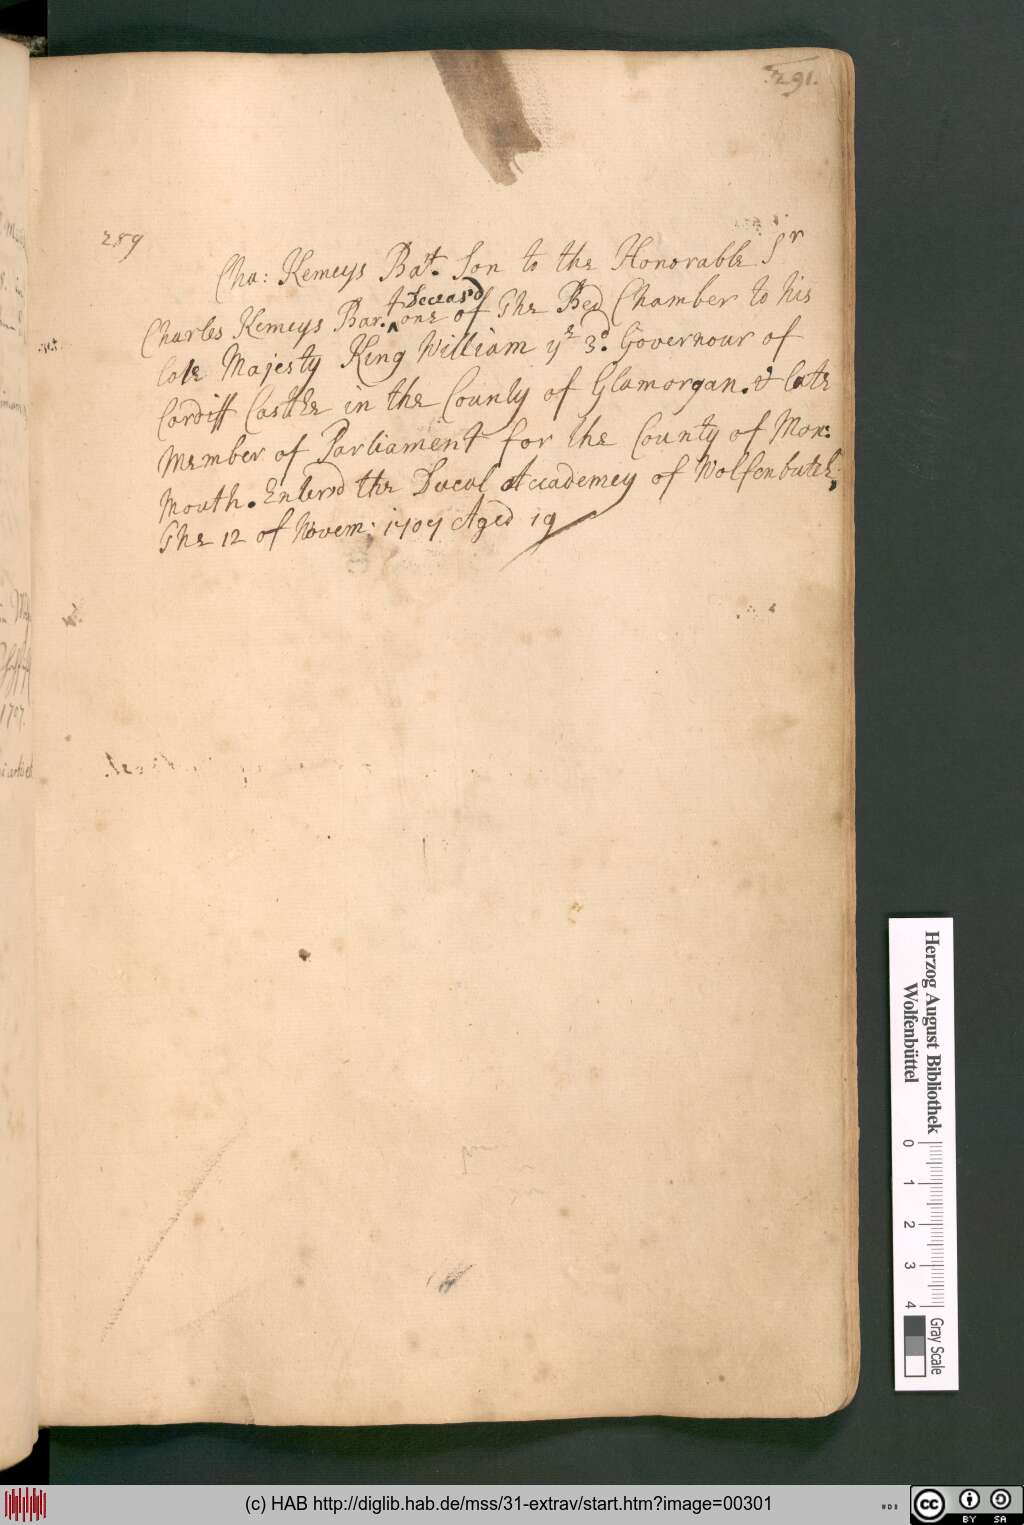 291.
289
Cha: Kemeys Bat. Son to the Honorable Sr
Deceasd
Charles Kemeys Bart. ^ one of The Bed Chamber to his
late Majesty King William ye 3d. Governour of
Cardiff Castle in the County of Glamorgan. & late
Member of Parliament for the County of Mon:
mouth. Enterd the Ducal Accademey of Wolfenbutel;
The 12 of Novem: 1707 Aged 19
1707.
Herzog August Bibliothek
Wolfenbüttel
0 1 2 3 4
Gray Scale
(c) HAB http://diglib.hab.de/mss/31-extrav/start.htm?image=00301
cc BY SA